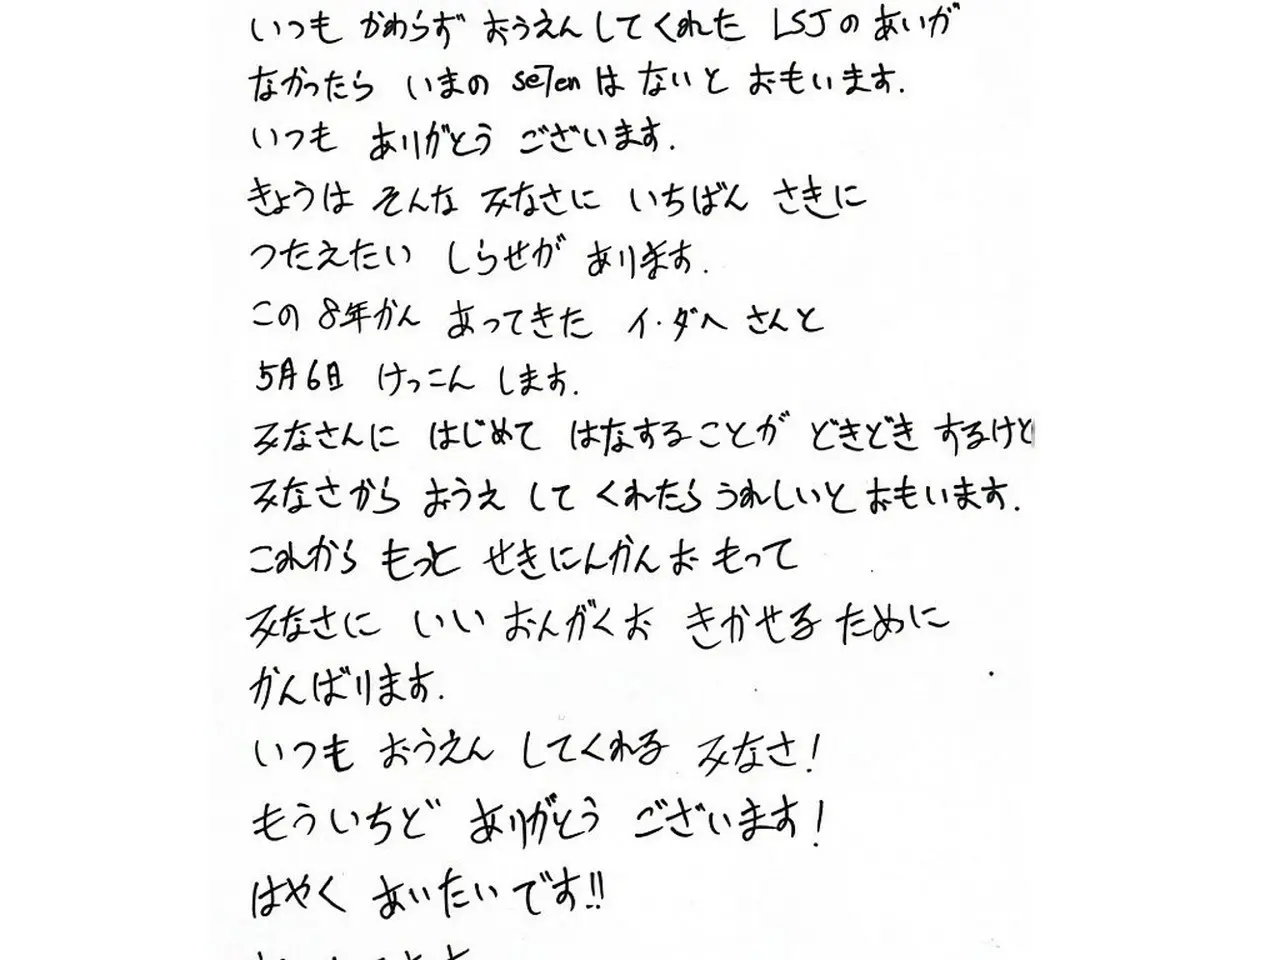 いつも かわらず おうえんしてくれた LSJの あいが
なかったら いまの se7en は ないと おもいます.
いつも ありがとう ございます.
きょうは そんな みなさに いちばん さきに
つたえたい しらせが あります.
この 8年かん あってきた イ・ダヘ さんと
5月6日 けっこん します.
みなさんに はじめて はなすることが どきどき するけと
みなさから おうえ して くれたら うれしいと おもいます.
これから もっと せきにんかんお もって
みなさに いい おんがくお きかせる ために
がんばります.
いつも おうえん してくれる みなさ!
もういちど ありがとう ございます!
はやく あいたい です!!